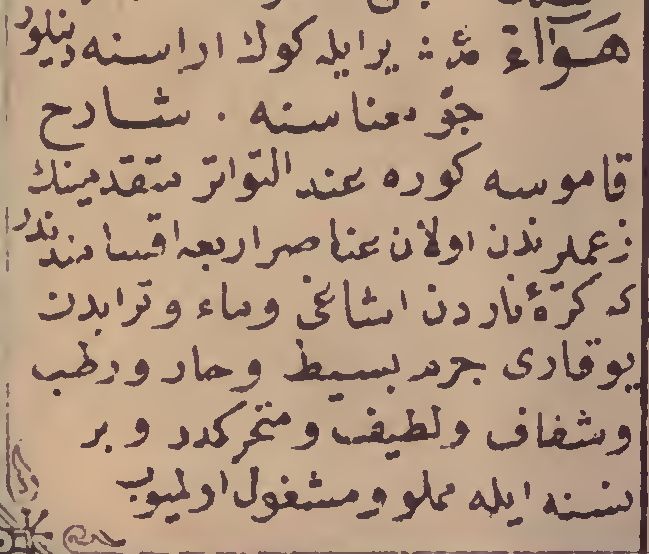 هوآء مدّ ث یر ایله كوك اراسنه دینلور
جوّ معناسنه . شارح
قاموسه كوره عند التواتر متقدمینك
زعملرندن اولان عناصر اربعه اقسامندندر
كه كرۀ ناردن اشاغی وماء وترابدن
یوقاری جرم بسیط وحار ورطب
وشفاف ولطیف ومتحركدر وبر
نسنه ایله مملو ومشغول اولمیوب